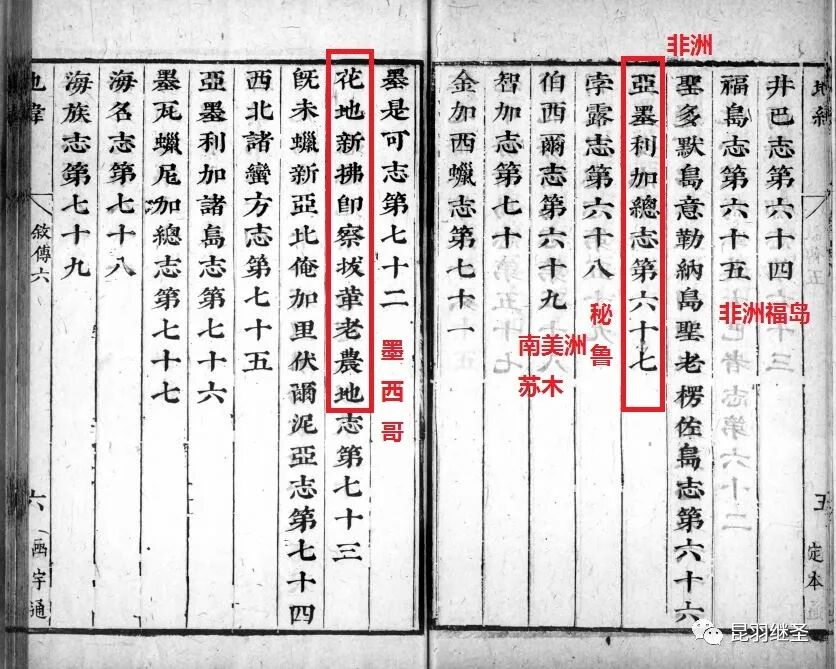 非洲
非洲福岛
秘鲁
南美洲苏木
墨西哥
地緯
定本
井巴志第六十四
福島志第六十五
聖多默島意勒納島聖老楞佐島志第六十六
亞墨利加總志第六十七
孛露志第六十八
伯西爾志第六十九
智加志第七十
金加西蠟志第七十一
墨是可志第七十二
花地新拂郎察拔革老農地志第七十三
旣未蠟新亞比俺加里伏爾泥亞志第七十四
西北諸蠻方志第七十五
亞墨利加諸島志第七十六
墨瓦蠟尼加總志第七十七
海名志第七十八
海族志第七十九
地緯 敘傳六 六 函宇通
昆羽继圣